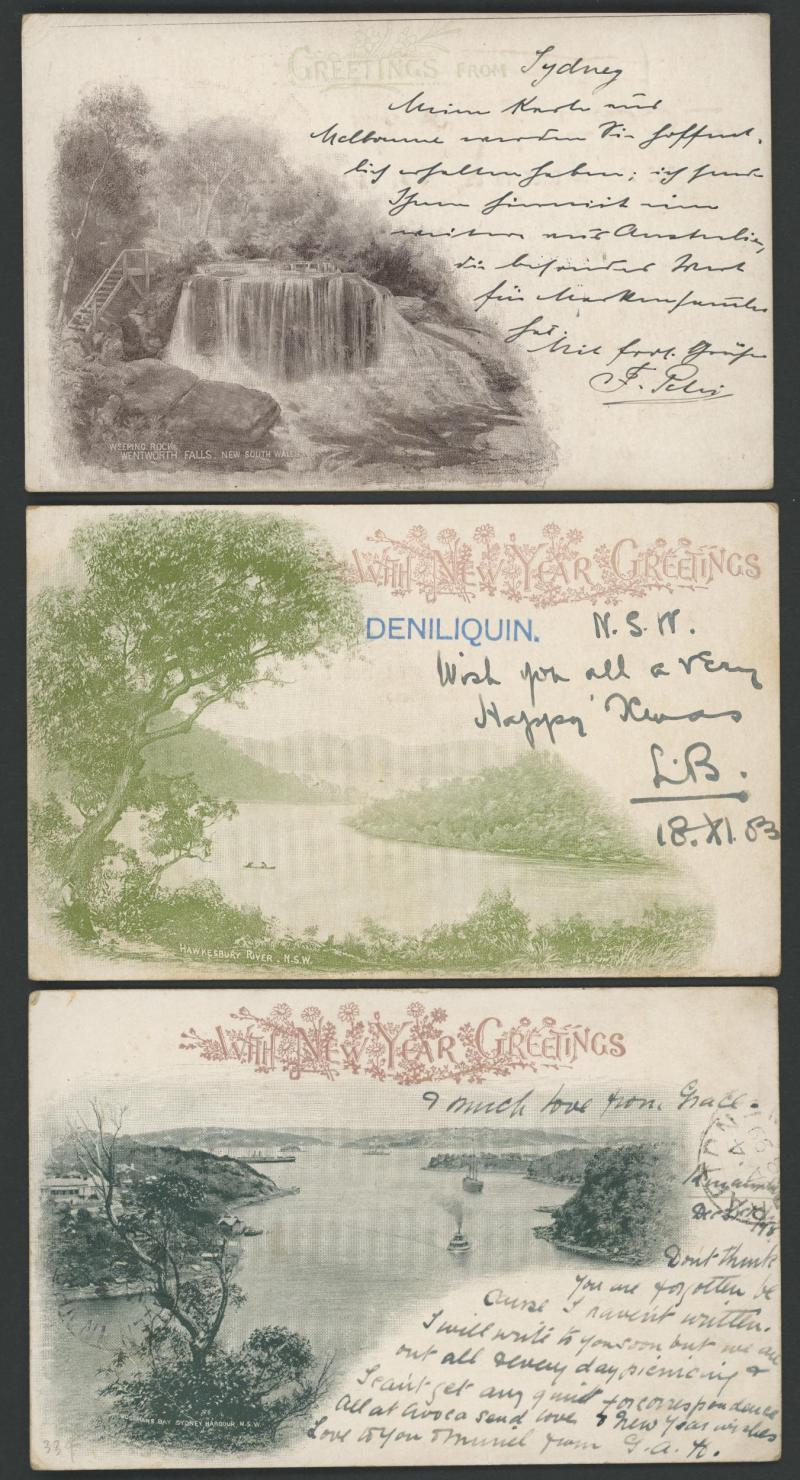 GREETINGS FROM Sydney
Meine Karte aus
Melbourne werden Sie hoffent-
lich erhalten haben; ich sende
Ihnen hiermit eine
weitere aus Australien,
die besonderen Wert
für Markensammler
hat.
Mit frdl. Grüße
F.
WEEPING ROCK
WENTWORTH FALLS. NEW SOUTH WALES
WITH NEW YEAR GREETINGS
DENILIQUIN. N.S.W.
Wish you all a very
Happy Xmas
L.B.
18.XI.03
HAWKESBURY RIVER. N.S.W.
WITH NEW YEAR GREETINGS
& much love from Grace.
Dont think
you are forgotten be
cause I haven't written.
I will write to you soon but we are
out all & every day picnicing &
I can't get any quiet for correspondence
All at Avoca send love & New Year wishes
Love to You & Muriel from G.A.K.
BAY SYDNEY HARBOUR. N.S.W.
33